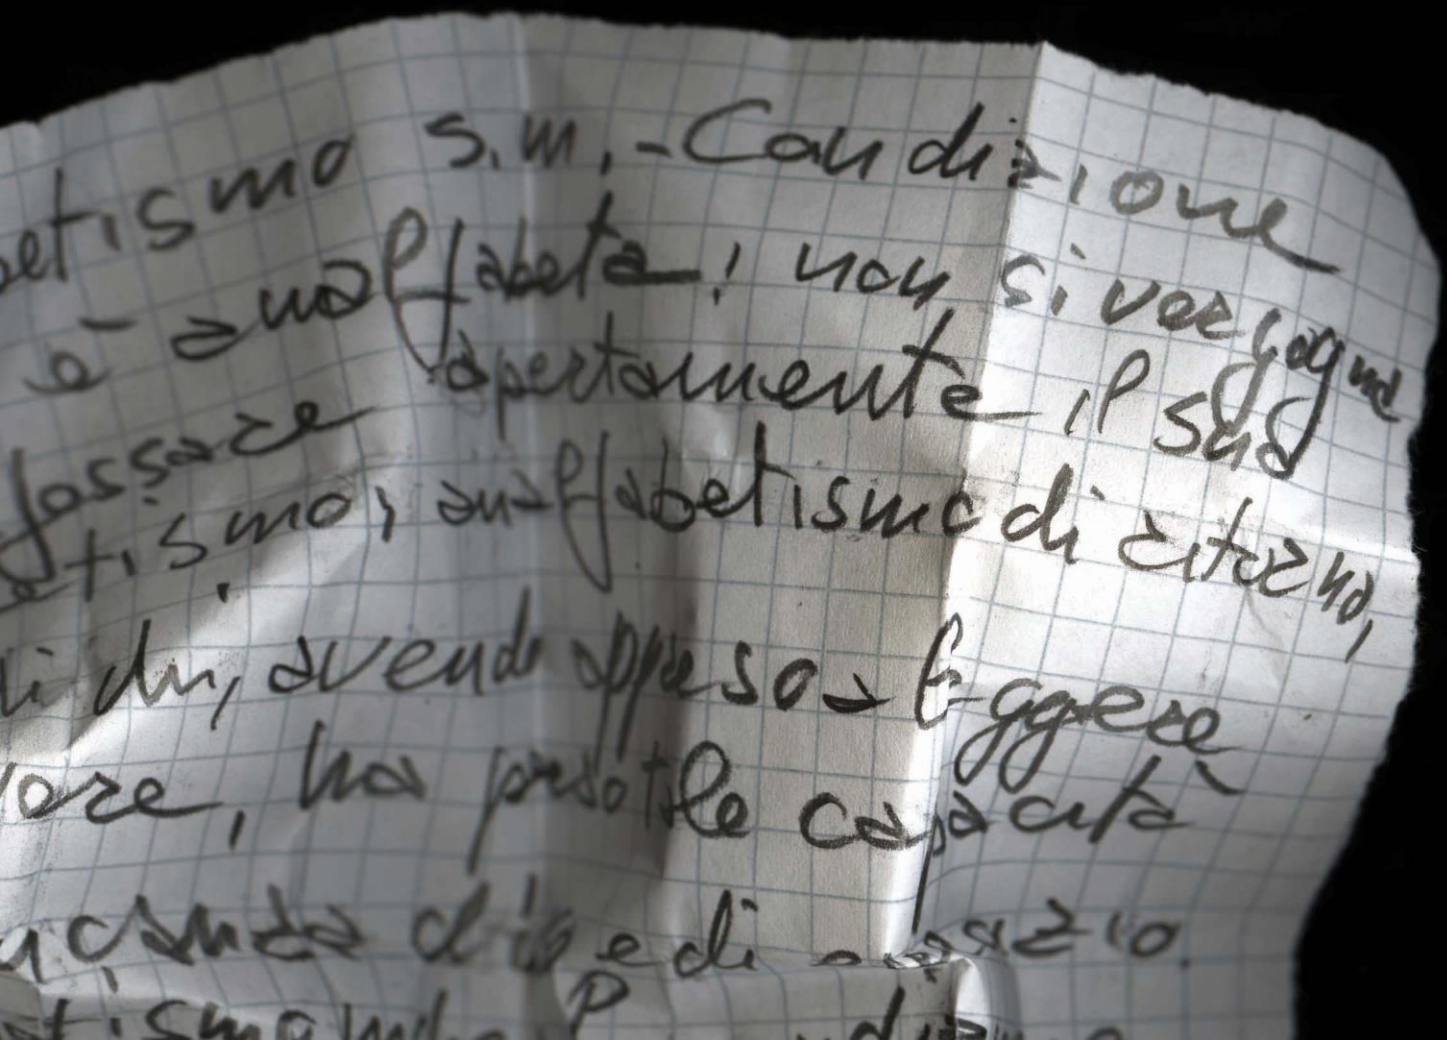 betismo s.m. - Condizione
è analfabeta; non si vergogna
fossare apertamente il suo
etismo; analfabetismo di ritorno,
di chi, avendo appreso a leggere
vore, ha perso tale capacità
ucanza di e di